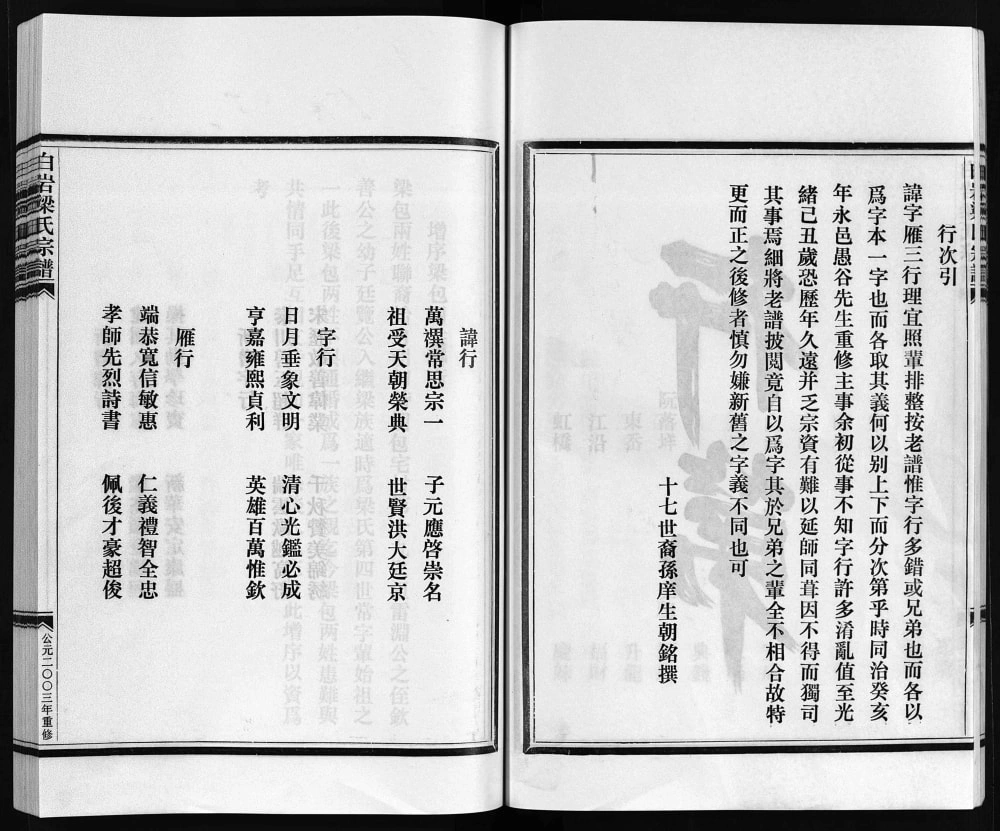 行次引
諱字雁三行理宜照輩排整按老譜惟字行多錯或兄弟也而各以
爲字本一字也而各取其義何以别上下而分次第乎時同治癸亥
年永邑愚谷先生重修主事余初從事不知字行許多淆亂值至光
緒己丑歲恐歷年久遠并乏宗資有難以延師同葺因不得而獨司
其事焉細將老譜披閲竟自以爲字其於兄弟之輩全不相合故特
更而正之後修者慎勿嫌新舊之字義不同也可
十七世裔孫庠生朝銘撰
諱行
萬潩常思宗一 子元應啓崇名
祖受天朝榮典 世賢洪大廷京
字行
日月垂象文明 清心光鑑必成
亨嘉雍熙貞利 英雄百萬惟欽
雁行
端恭寬信敏惠 仁義禮智全忠
孝師先烈詩書 佩後才豪超俊
白岩梁氏宗譜
公元二〇〇三年重修